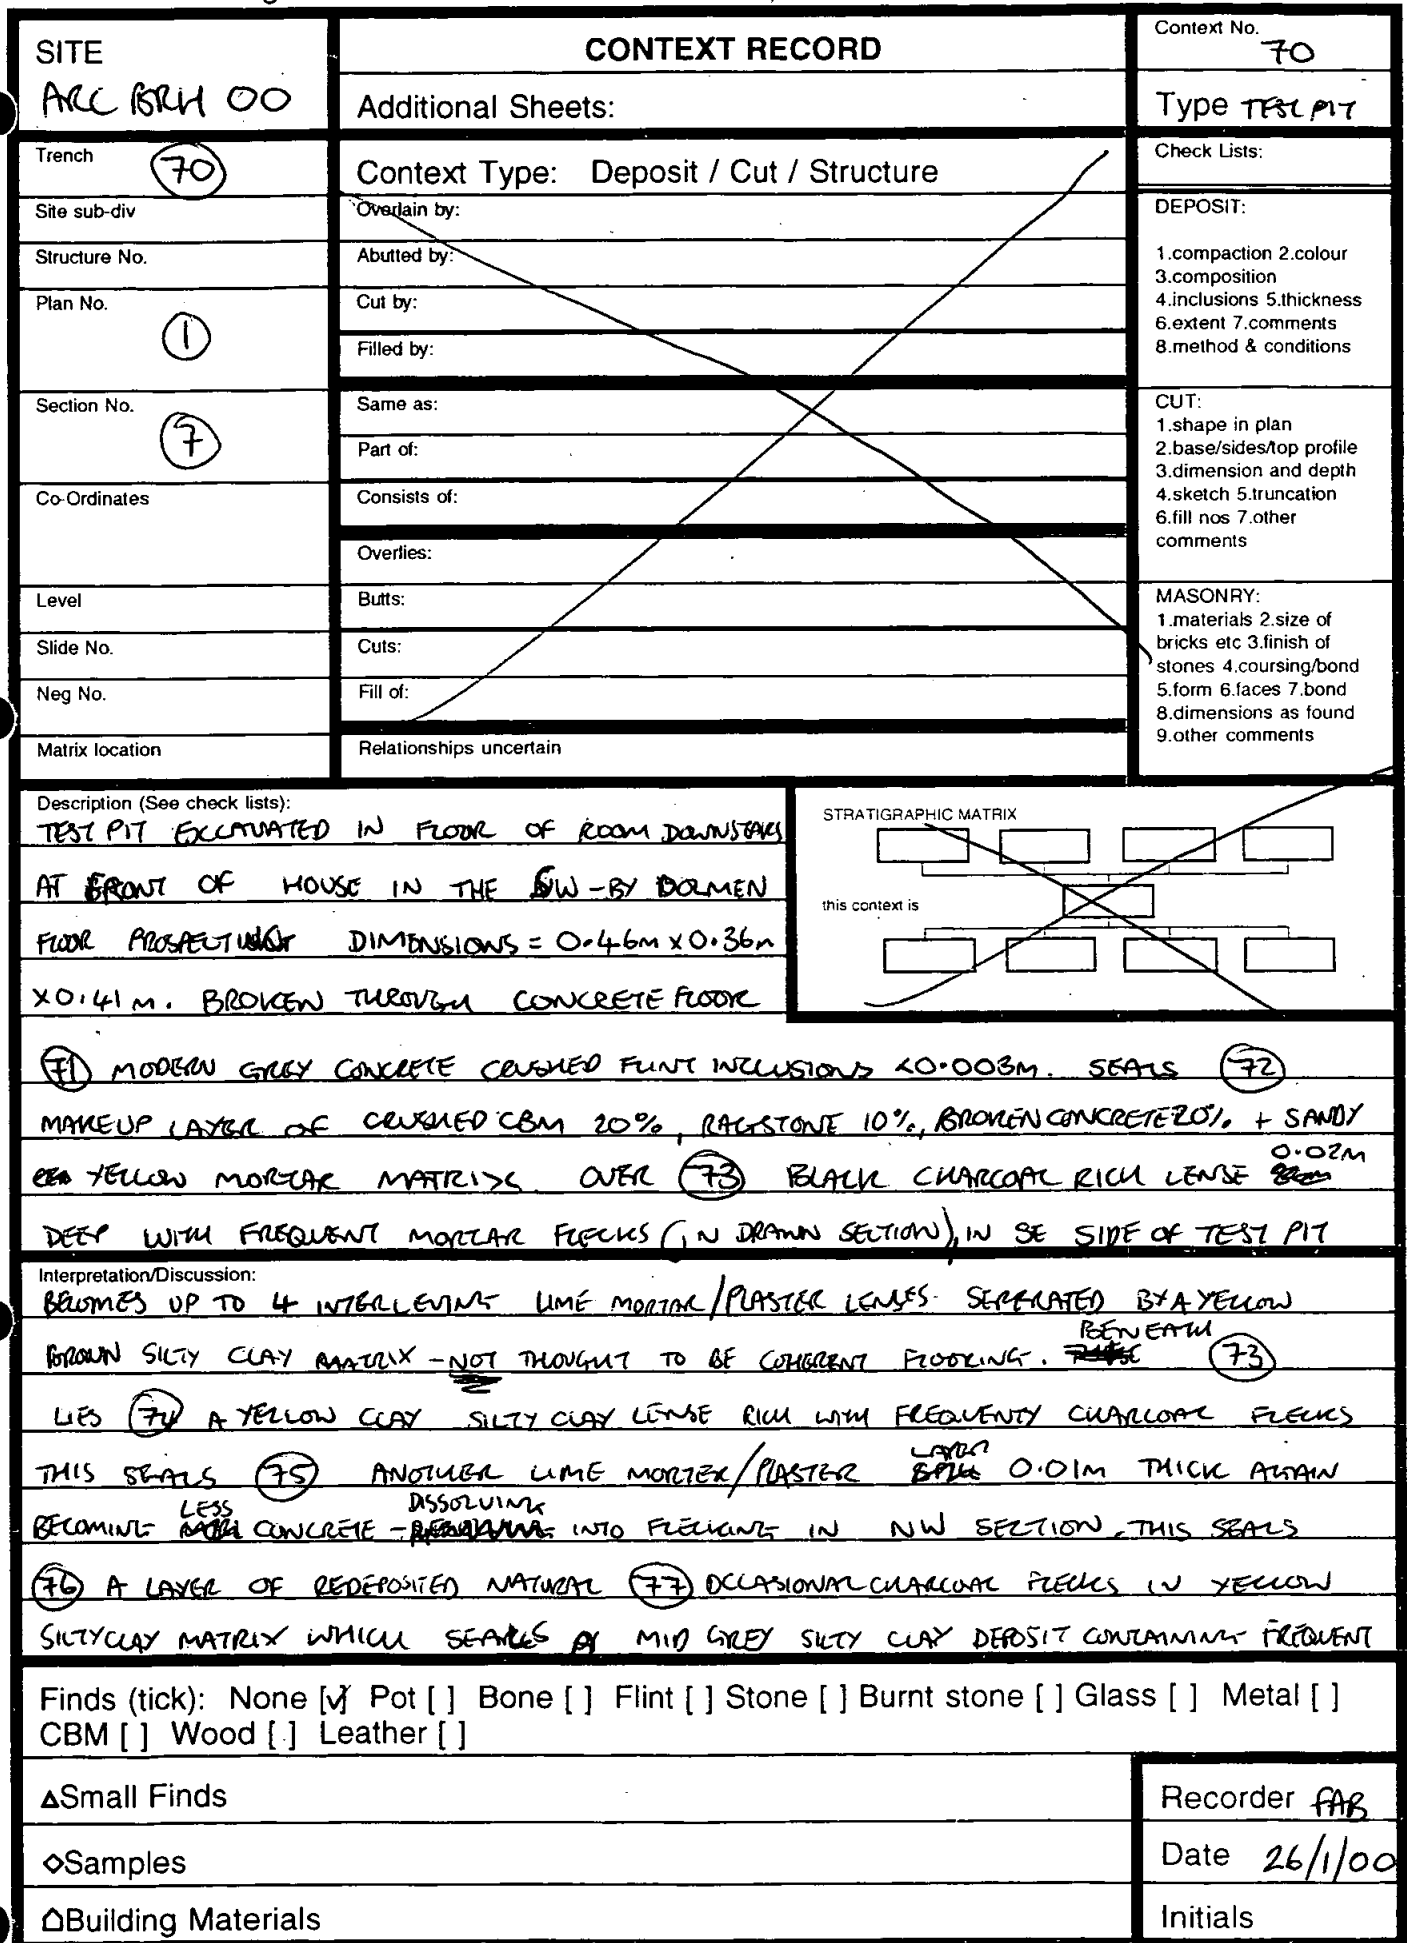 SITE
ARC BRH 00
CONTEXT RECORD
Additional Sheets:
Context No.
70
Type TEST PIT
Trench 70
Site sub-div
Structure No.
Plan No.
1
Section No.
7
Co-Ordinates
Level
Slide No.
Neg No.
Matrix location
Context Type: Deposit / Cut / Structure
Overlain by:
Abutted by:
Cut by:
Filled by:
Same as:
Part of:
Consists of:
Overlies:
Butts:
Cuts:
Fill of:
Relationships uncertain
Check Lists:
DEPOSIT:
1.compaction 2.colour
3.composition
4.inclusions 5.thickness
6.extent 7.comments
8.method & conditions
CUT:
1.shape in plan
2.base/sides/top profile
3.dimension and depth
4.sketch 5.truncation
6.fill nos 7.other
comments
MASONRY:
1.materials 2.size of
bricks etc 3.finish of
stones 4.coursing/bond
5.form 6.faces 7.bond
8.dimensions as found
9.other comments
Description (See check lists):
TEST PIT EXCAVATED IN FLOOR OF ROOM DOWNSTAIRS
AT FRONT OF HOUSE IN THE SW - BY DOLMEN
FLOOR PROSPECTING DIMENSIONS = 0.46m x 0.36m
x 0.41m. BROKEN THROUGH CONCRETE FLOOR
STRATIGRAPHIC MATRIX
this context is
71 MODERN GREY CONCRETE CRUSHED FLINT INCLUSIONS <0.003M. SEALS 72
MAKEUP LAYER OF CRUSHED CBM 20%, RAGSTONE 10%, BROKEN CONCRETE 20% + SANDY
YELLOW MORTAR MATRIX OVER 73 BLACK CHARCOAL RICH LENSE 0.02M
DEEP WITH FREQUENT MORTAR FLECKS (IN DRAWN SECTION), IN SE SIDE OF TEST PIT
Interpretation/Discussion:
BECOMES UP TO 4 INTERLEVING LIME MORTAR/PLASTER LENSES SEPERATED BY A YELLOW
BROWN SILTY CLAY MATRIX - NOT THOUGHT TO BE COHERENT FLOORING. BENEATH 73
LIES 74 A YELLOW CLAY SILTY CLAY LENSE RICH WITH FREQUENTY CHARCOAL FLECKS
THIS SEALS 75 ANOTHER LIME MORTER/PLASTER LAYER 0.01M THICK AGAIN
BECOMING LESS CONCRETE - DISSOLVING INTO FLECKING IN NW SECTION. THIS SEALS
76 A LAYER OF REDEPOSITED NATURAL 77 OCCASIONAL CHARCOAL FLECKS IN YELLOW
SILTY CLAY MATRIX WHICH SEALS A MID GREY SILTY CLAY DEPOSIT CONTAINING FREQUENT
Finds (tick): None [✓] Pot [ ] Bone [ ] Flint [ ] Stone [ ] Burnt stone [ ] Glass [ ] Metal [ ]
CBM [ ] Wood [ ] Leather [ ]
△Small Finds
◇Samples
Building Materials
Recorder FAB
Date 26/1/00
Initials